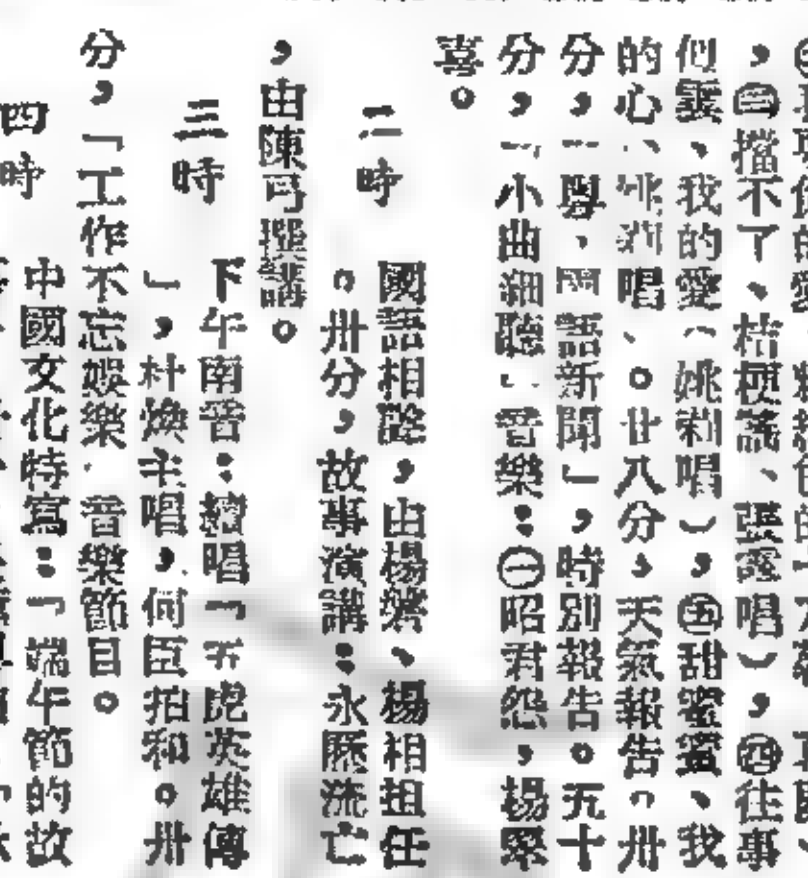 ，㊂擋不了、桔梗謠、張露唱），㊃往事
似雲、我的愛（姚莉唱），㊄甜蜜蜜、我
的心、姚莉唱、。廿八分，天氣報告。卅
分，「粵，國語新聞」，時別報告。五十
分，「小曲細聽」音樂：㊀昭君怨，楊翠
喜。
二時
國語相聲，由楊、楊相担任
。卅分，故事演講：永歷流亡
，由陳弓撰講。
三時
下午南音：續唱「五虎英雄傳
」，杜煥主唱，何臣拍和。卅
分，「工作不忘娛樂．音樂節目。
四時
中國文化特寫：「端午節的故